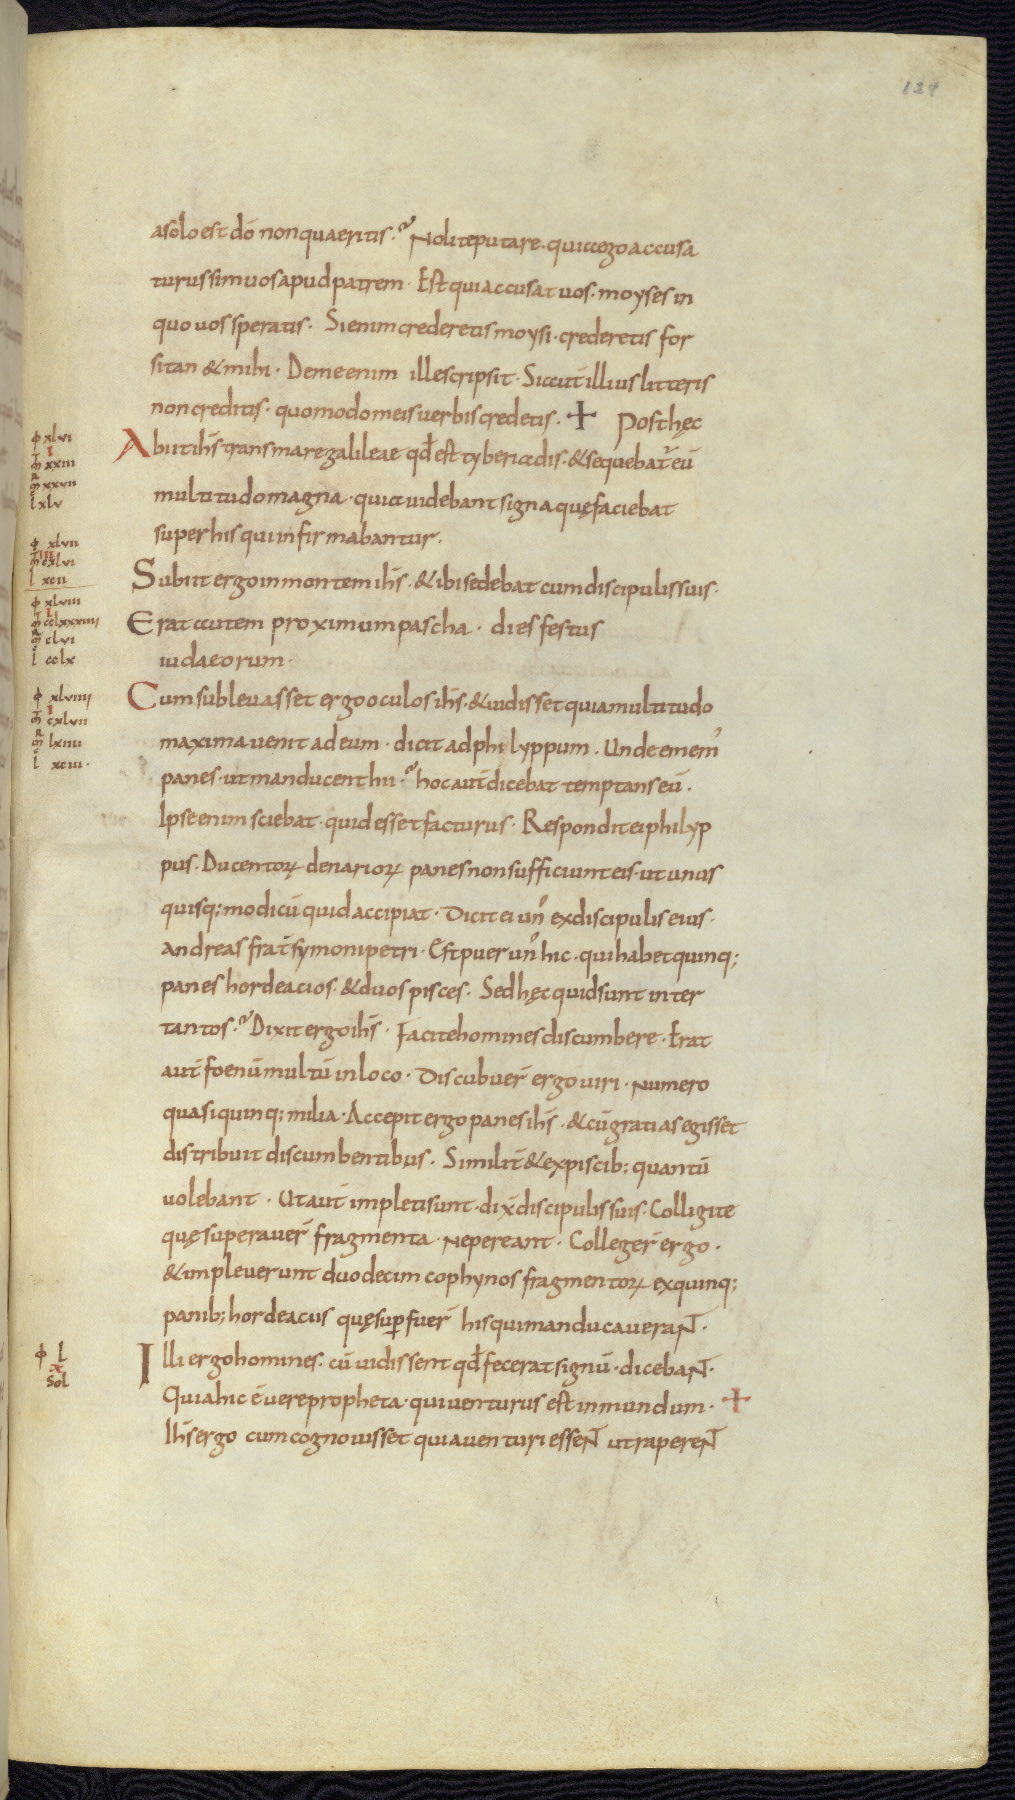 129
asolo est do non quaeritis. Nolite putare. quia ego accusa
turus sim uos apud patrem. Est qui accusat uos. moyses in
quo uos speratis. Si enim crederetis moysi. crederetis for
sitan & mihi. De me enim ille scripsit. Si aut illius litteris
non creditis. quomodo meis uerbis credetis. + Post hęc
Abiit ihs trans mare galileae qd est tyberiadis. & sequebatr eū
multitudo magna. quia uidebant signa quę faciebat
super his qui infirmabantur.
Subiit ergo in montem ihs. & ibi sedebat cum discipulis suis.
Erat autem proximum pascha. dies festus
iudaeorum.
Cum subleuasset ergo oculos ihs. & uidisset quia multitudo
maxima uenit ad eum. dicit ad philyppum. Unde emem'
panes. ut manducent hii. hoc aut dicebat temptans eū.
Ipse enim sciebat. quid esset facturus. Respondit ei philyp
pus. Ducentoꝝ denarioꝝ panes non sufficiunt eis. ut unus
quisq; modicū quid accipiat. Dicit ei un' ex discipulis eius.
andreas frat symoni petri. Est puer un' hic. qui habet quinq;
panes hordeacios. & duos pisces. Sed hęc quid sunt inter
tantos. Dixit ergo ihs. Facite homines discumbere. Erat
aut foenū multū in loco. Discubuer ergo uiri. numero
quasi quinq; milia. Accepit ergo panes ihs. & cū gratias egisset
distribuit discumbentibus. Similit & ex piscib; quantū
uolebant. Ut aut impleti sunt. dix discipulis suis. Colligite
quę superauer fragmenta. ne pereant. Colleger ergo.
& impleuerunt duodecim cophynos fragmentoꝝ ex quinq;
panib; hordeacius quę supfuer his qui manducauerant.
Illi ergo homines. cū uidissent qd fecerat signū. dicebant.
Quia hic ē uere propheta. qui uenturus est in mundum. +
Ihs ergo cum cognouisset quia uenturi essent ut raperent
ϕ xlvi
i
m xxiii
m xxvii
l xlv
ϕ xlvii
iiii
m cxlvi
l xcii
ϕ xlviii
i
m cclxxxiiii
m clvi
l cclx
ϕ xlviiii
i
m cxlvii
m lxiiii
l xciii.
ϕ l
x
sol